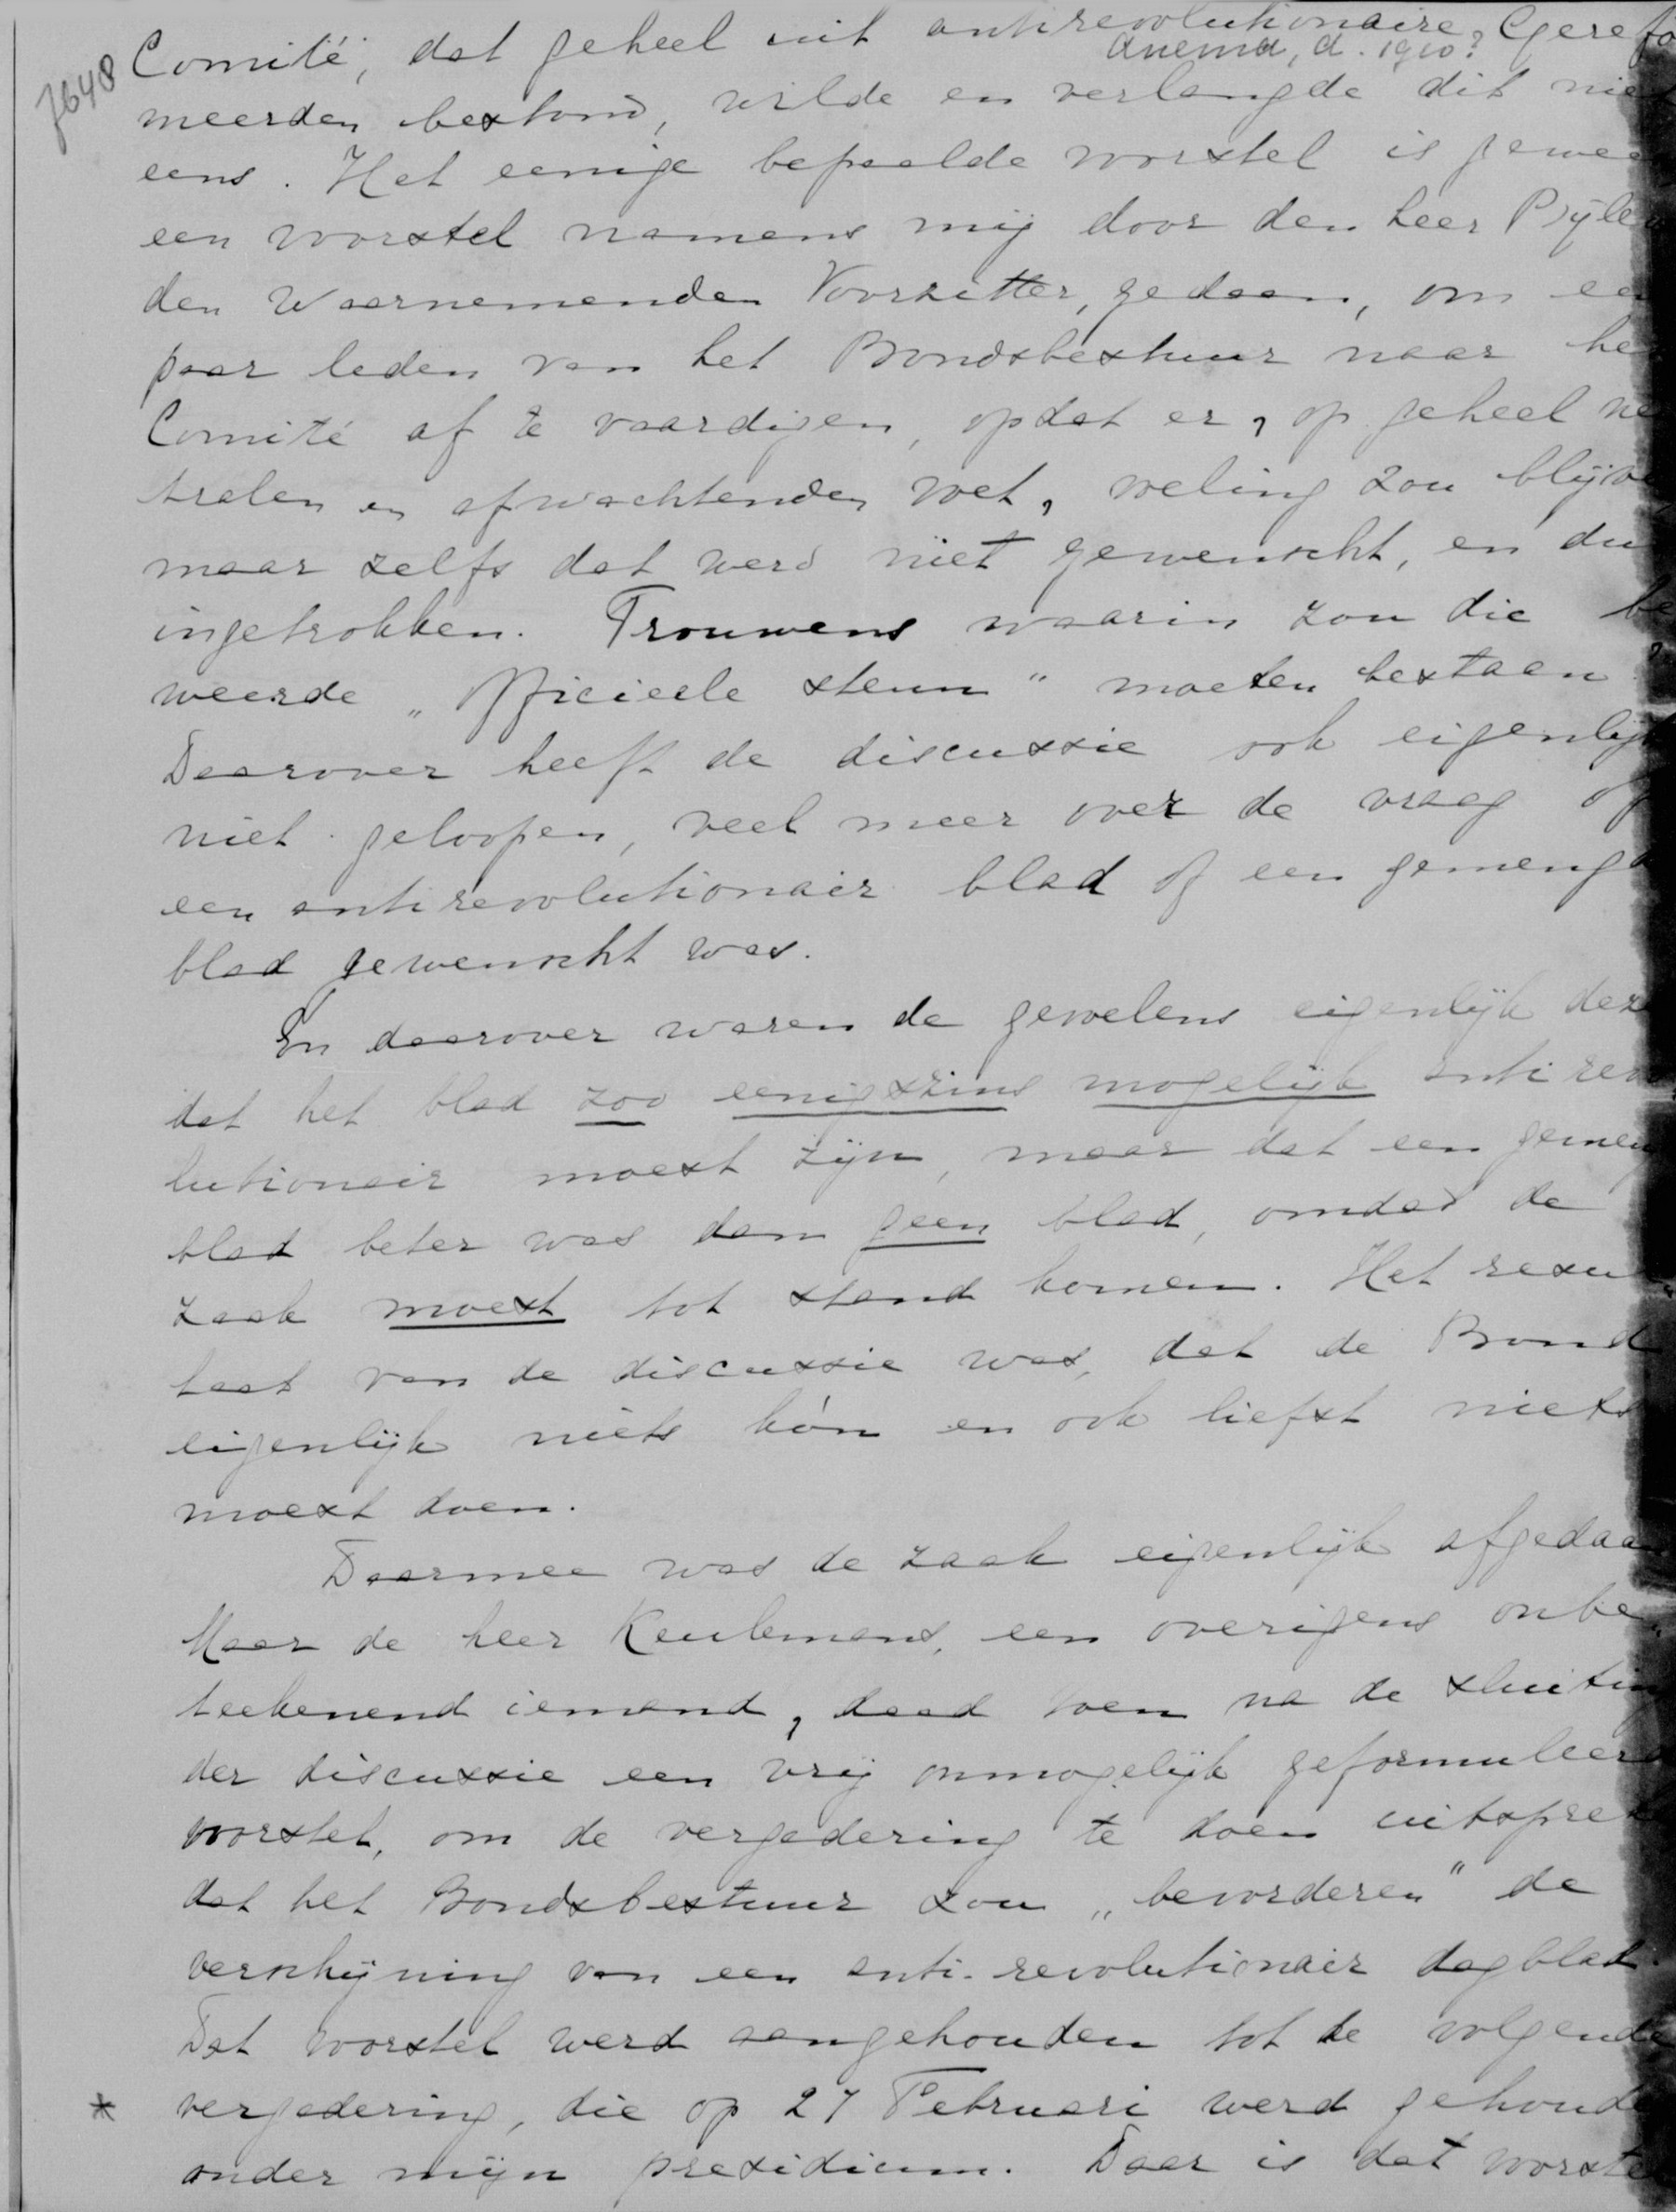 7648
Comité, dat geheel uit antirevolutionaire, Gerefo
Anema, d. 1910?
meerden bestond, wilde en verlangde dit niet
eens. Het eenige bepaalde voorstel is gewee
een voorstel namens mij door den heer Pijle
den Waarnemenden Voorzitter, gedaan, om ee
paar leden van het Bondsbestuur naar he
Comité af te vaardigen, opdat er, op geheel ne
tralen en afwachtenden voet, voeling zou blijve
maar zelfs dat werd niet gewenscht, en du
ingetrokken. Trouwens waarin zou die be
weerde „officieele steun" moeten bestaan?
Daarover heeft de discussie ook eigenlijk
niet geloopen, veel meer over de vraag of
een antirevolutionair blad of een gemengd
blad gewenscht was.
En daarover waren de gevoelens eigenlijk deze
dat het blad zoo eenigszins mogelijk antirevo
lutionair moest zijn, maar dat een gemeng
blad beter was dan geen blad, omdat de
zaak moest tot stand komen. Het resul-
taat van de discussie was, dat de Bond
eigenlijk niets kón en ook liefst niets
moest doen.
Daarmee was de zaak eigenlijk afgedaan
Maar de heer Keulemans, een overigens onbe-
teekenend iemand, deed toen na de sluiting
der discussie een vrij onmogelijk geformuleerd
voorstel, om de vergadering te doen uitsprek
dat het Bondsbestuur zou „bevorderen" de
verschijning van een anti-revolutionair dagblad.
Dat voorstel werd aangehouden tot de volgende
* vergadering, die op 27 Februari werd gehoude
onder mijn presidium. Daar is dat voorste